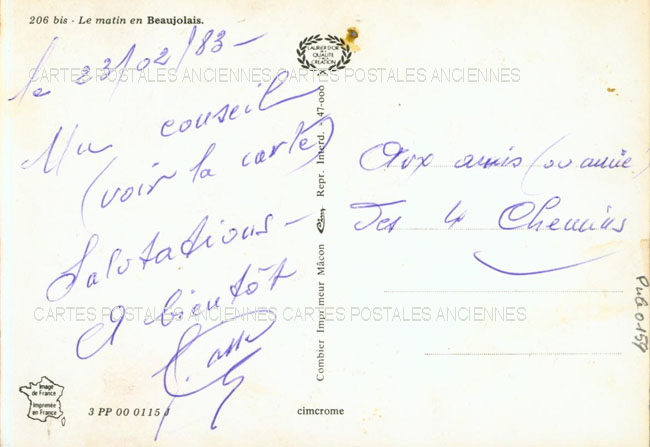 206 bis - Le matin en Beaujolais.
le 23/02/83 -
LAURIER D'OR
DE LA
QUALITE
CREATION
CARTES POSTALES ANCIENNES CARTES POSTALES ANCIENNES
Un conseil
(voir la carte)
Salutations -
A bientôt
Aux amis (ou amie)
Des 4 Chemins
Combier Imprimeur Mâcon Cim Repr. Interd. 47-000
CARTES POSTALES ANCIENNES CARTES POSTALES ANCIENNES
Pub 0159
Image
de France
Imprimée
en France
3 PP 00 0115 J
cimcrome